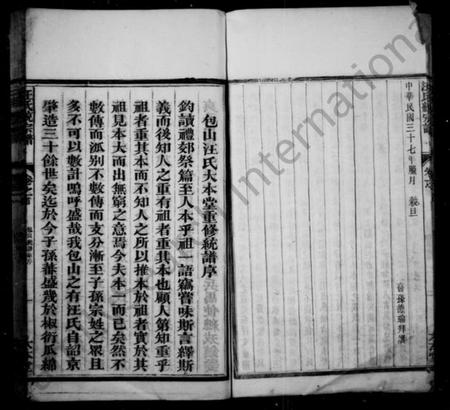 中華民國三十七年 月 穀旦
裔孫德 拜譔
包山汪氏大本堂重修統譜序
鈞讀禮郊祭篇至人本乎祖一語竊嘗味斯言繹斯
義而後知人之重有祖者重其本也顧人第知重乎
祖者重其本而不知人之所以推本於祖者實於其
祖見本大而出無窮之意焉今夫本一而已矣然不
數傳而派別不數傳而支分漸至子孫宗姓之眾且
多不可以數計嗚呼盛哉我包山之有汪氏自詔京
肇造三十餘世矣迄於今子孫蕃盛幾於椒衍瓜綿
International